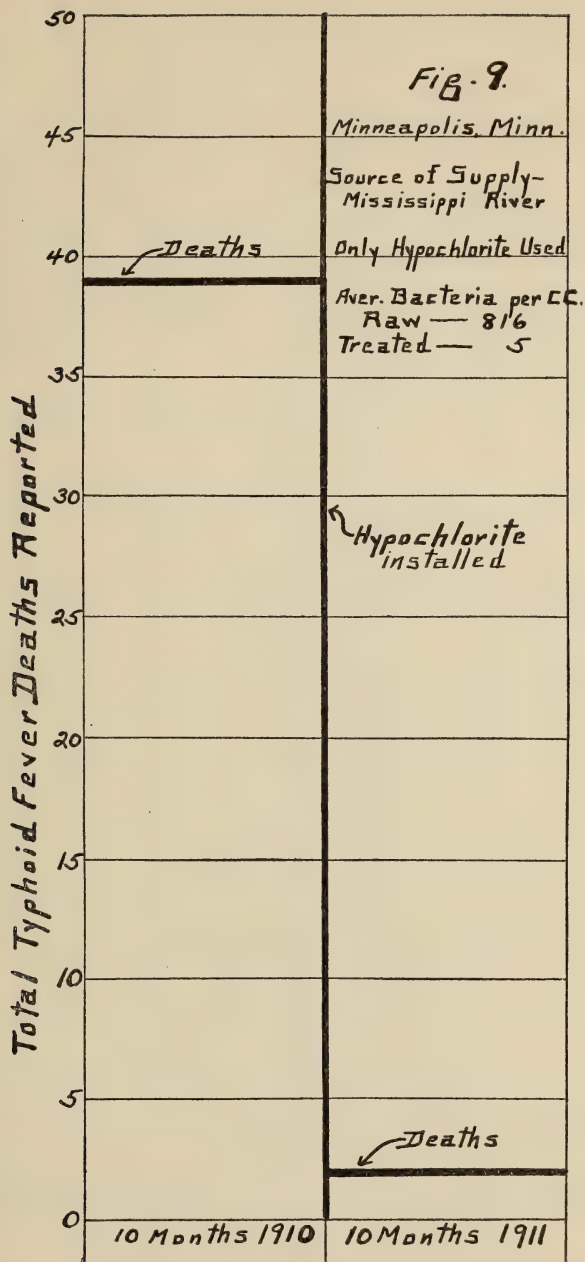 Fig. 9.
Minneapolis, Minn.
Source of Supply-
Mississippi River
Only Hypochlorite Used
Aver. Bacteria per CC.
Raw — 816
Treated — 5
Deaths
Hypochlorite
installed
Deaths
Total Typhoid Fever Deaths Reported
50
45
40
35
30
25
20
15
10
5
0
10 Months 1910
10 Months 1911